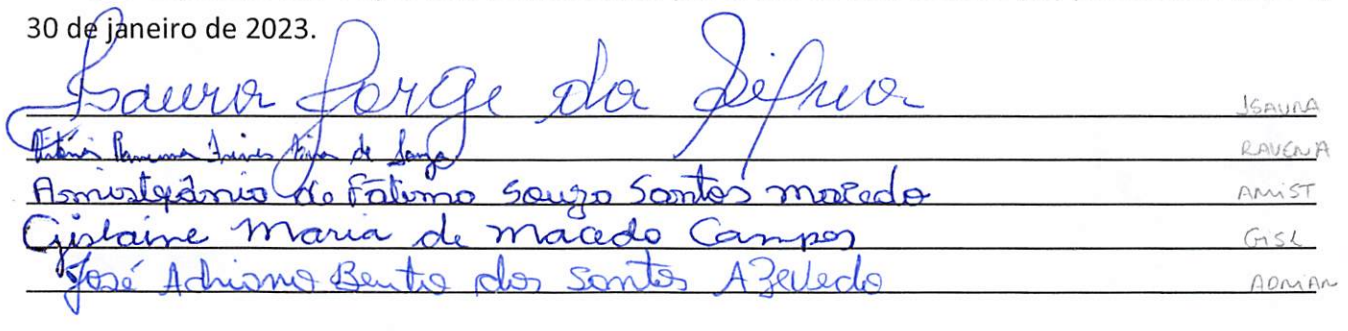 30 de janeiro de 2023.
Isaura Jorge da Silva ISAURA
de Souza RAVENA
de Fátima Souza Santos Macedo AMIST
Gislaine Maria de Macedo Campos GISL
José Adriano Bento dos Santos Azevedo ADRIAN